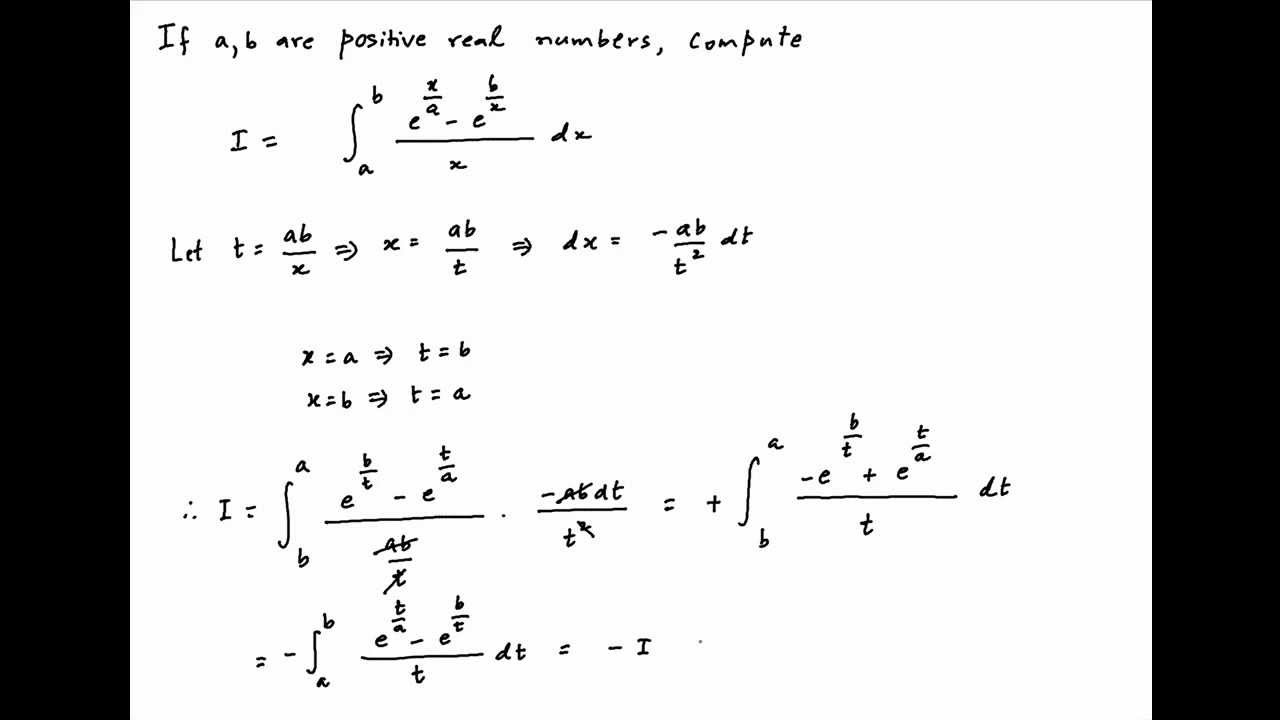 If a, b are positive real numbers, compute
I = ∫_a^b (e^(x/a) - e^(b/x))/x dx
Let t = ab/x ⇒ x = ab/t ⇒ dx = -ab/t² dt
x = a ⇒ t = b
x = b ⇒ t = a
∴ I = ∫_b^a (e^(b/t) - e^(t/a))/(ab/t) · (-ab dt)/t² = + ∫_b^a (-e^(b/t) + e^(t/a))/t dt
= - ∫_a^b (e^(t/a) - e^(b/t))/t dt = - I